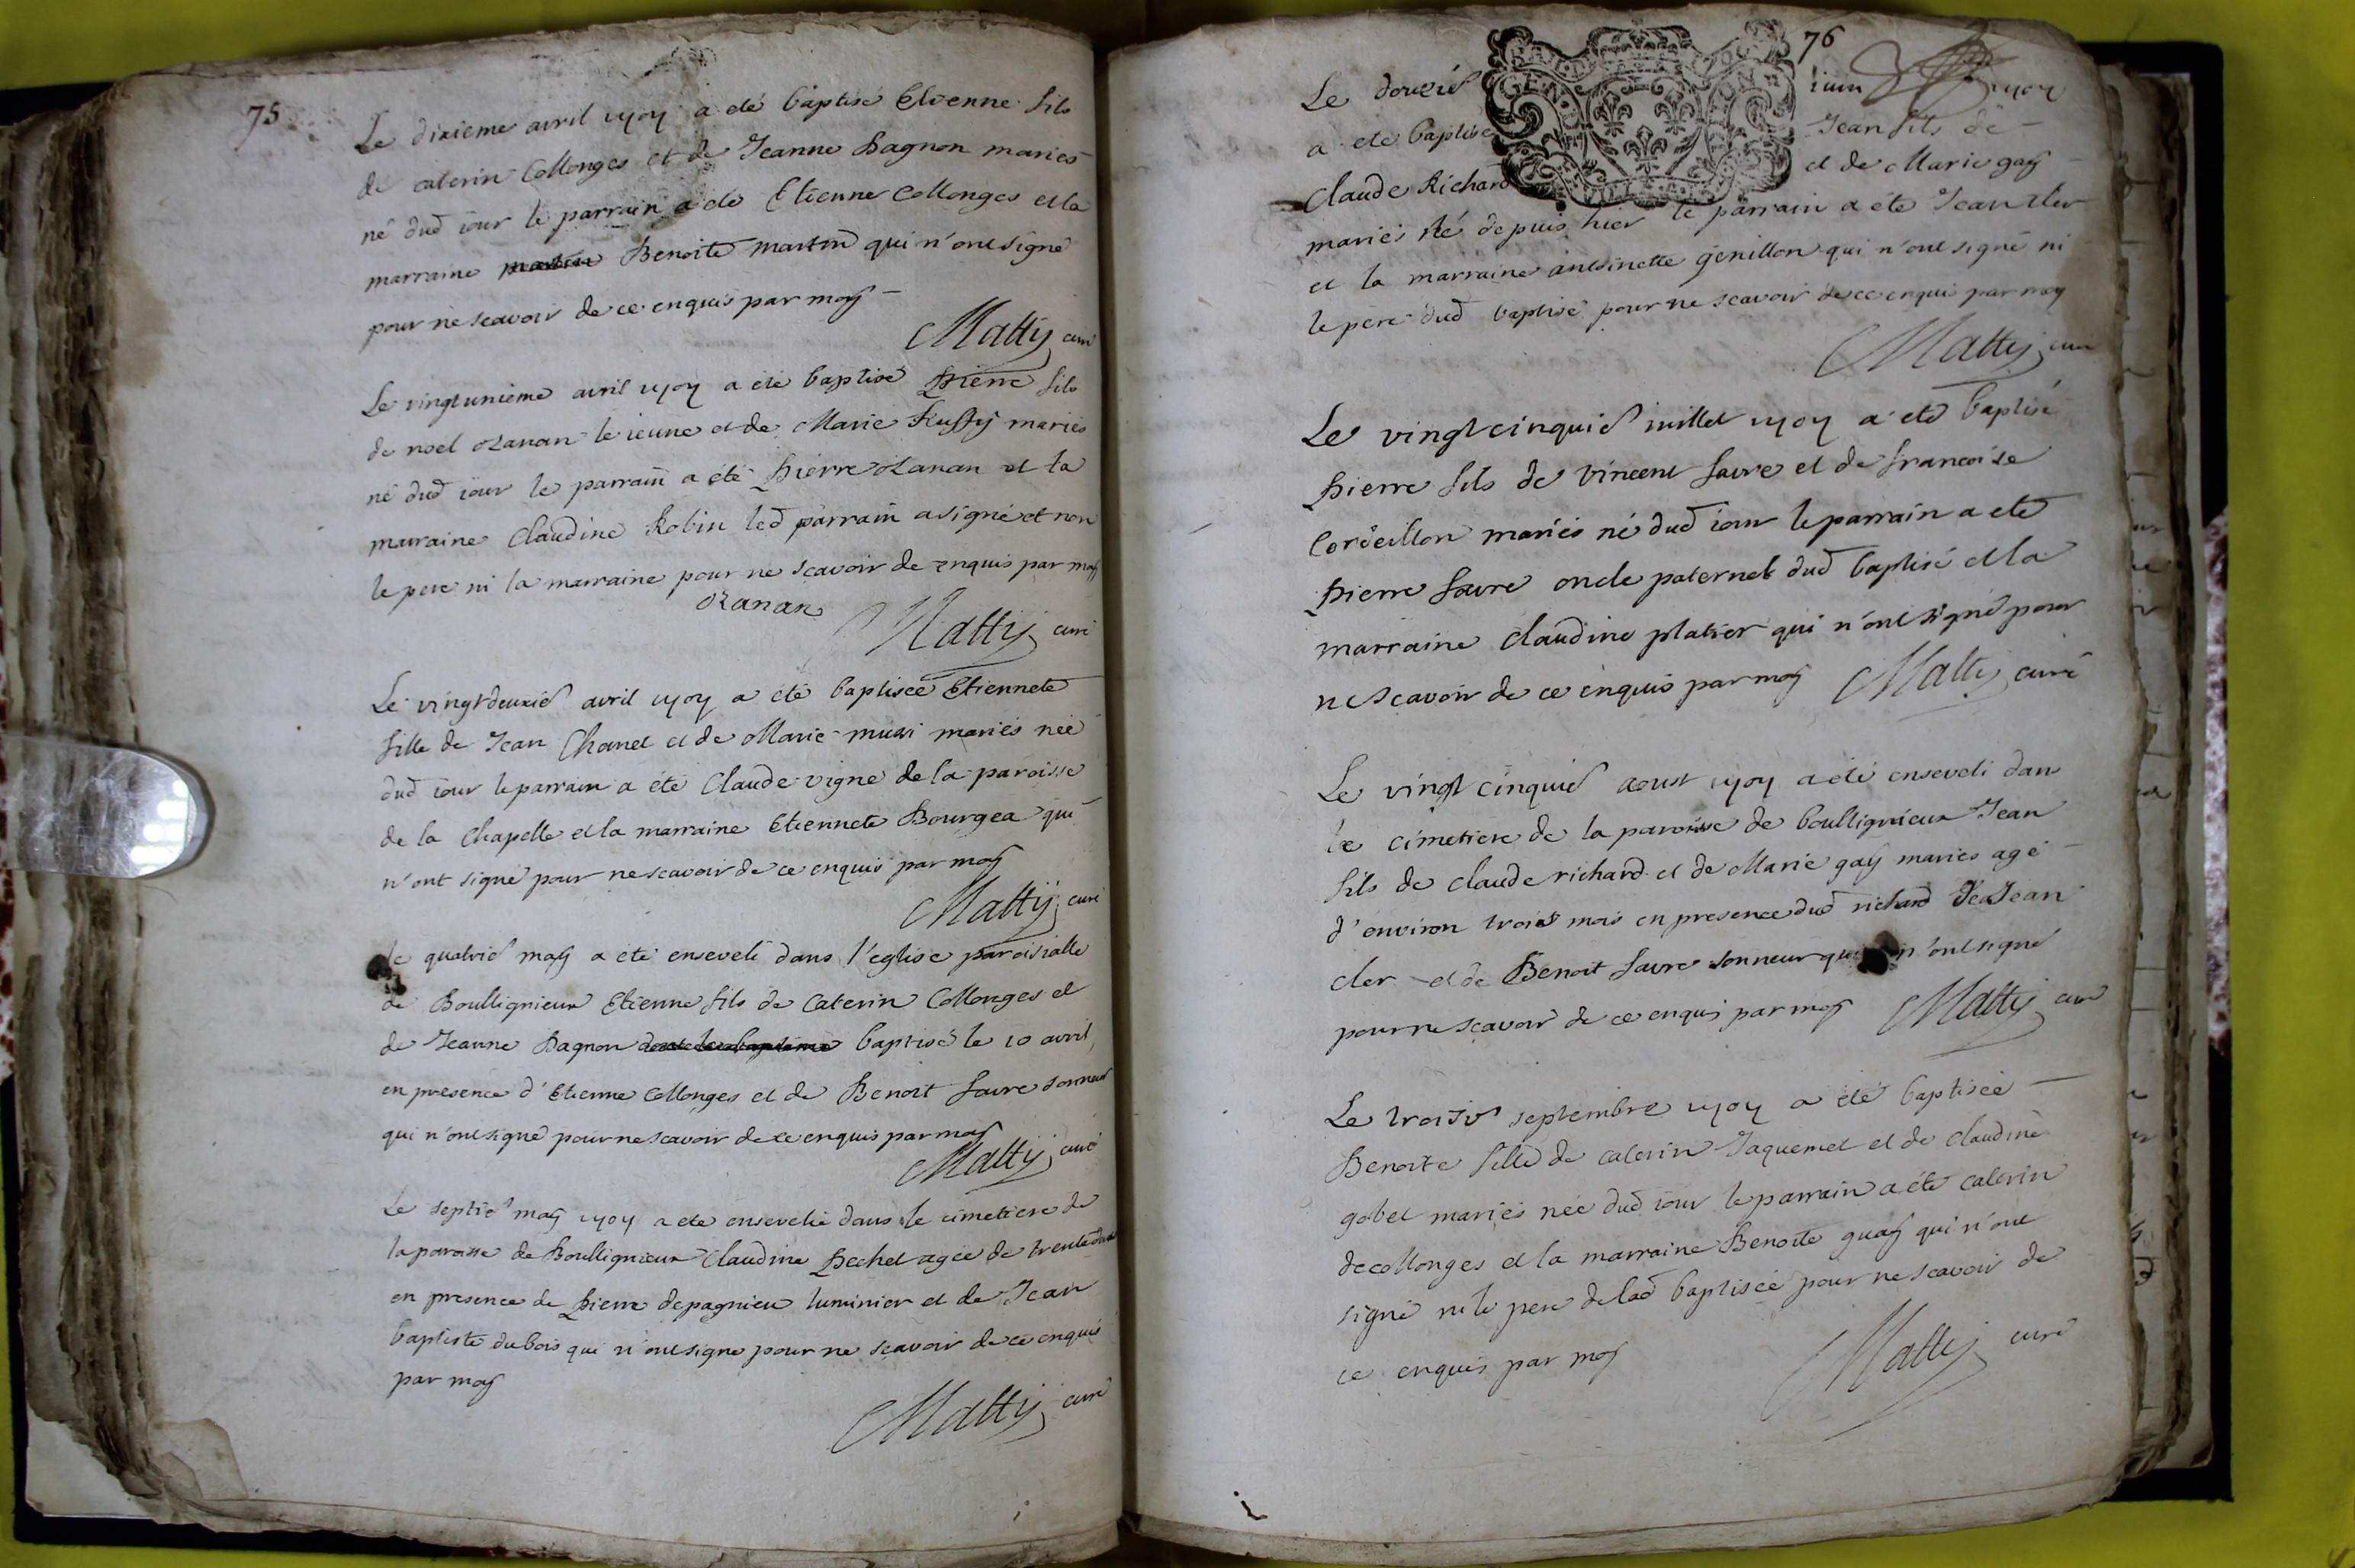 75
Le dixieme avril 1704 a eté baptisé Etienne fils
de caterin Collonges et de Jeanne Pagnon mariés
né dud iour le parrain a eté Etienne Collonges et la
marraine Benoite martin qui n'ont signé
pour ne scavoir de ce enquis par moy
Mattÿ curé
Le vingtunieme avril 1704 a eté baptisé Pierre fils
de noel ozanan le ieune et de Marie Ruffÿ mariés
né dud iour le parrain a été Pierre Ozanan et la
marraine Claudine Robin led parrain a signé et non
le pere ni la marraine pour ne scavoir de enquis par moy
Ozanan
Mattÿ curé
Le vingtdeuxie avril 1704 a eté baptisée Etiennete
fille de Jean Chanel et de Marie mariés née
dud iour le parrain a eté Claude vigne de la paroisse
de la Chapelle et la marraine Etiennete Bourgea qui
n'ont signé pour ne scavoir de ce enquis par moy
Mattÿ curé
Le quatrie may a eté enseveli dans l'eglise paroisialle
de Boullignieux Etienne fils de Caterin Collonges et
de Jeanne Pagnon dont le baptême baptisé le 10 avril
en presence d'Etienne Collonges et de Benoit favre sonneur
qui n'ont signé pour ne scavoir de ce enquis par moy
Mattÿ curé
Le septie may 1704 a eté ensevelie dans le cimetiere de
la paroisse de Boullignieux Claudine Pechet agée de trente
en presence de Pierre depagnieu luminier et de Jean
baptiste dubois qui n'ont signé pour ne scavoir de ce enquis
par moy
Mattÿ curé
76
Le douzié iuin 1704
a eté baptisé Jean fils de
Claude Richard et de Marie gay
mariés né depuis hier le parrain a eté Jean cler
et la marraine antoinette genillon qui n'ont signé ni
le pere dud baptisé pour ne scavoir de ce enquis par moy
Mattÿ curé
Le vingtcinquié iuillet 1704 a eté baptisé
Pierre fils de vincent favre et de francoise
Cordeillon mariés né dud iour le parrain a eté
Pierre favre oncle paternel dud baptisé et la
marraine Claudine platier qui n'ont signé pour
ne scavoir de ce enquis par moy Mattÿ curé
Le vingt cinquié aoust 1704 a eté enseveli dans
le cimetiere de la paroisse de boullignieux Jean
fils de Claude richard et de Marie gay mariés agé
d'environ trois mois en presence dud richard de Jean
cler et de Benoit favre sonneur qui n'ont signé
pour ne scavoir de ce enquis par moy Mattÿ curé
Le troisié septembre 1704 a eté baptisée
Benoite fille de caterin Jaquemet et de claudine
gobet mariés née dud iour le parrain a été caterin
de collonges et la marraine Benoite guay qui n'ont
signé ni le pere de lad baptisée pour ne scavoir de
ce enquis par moy Mattÿ curé